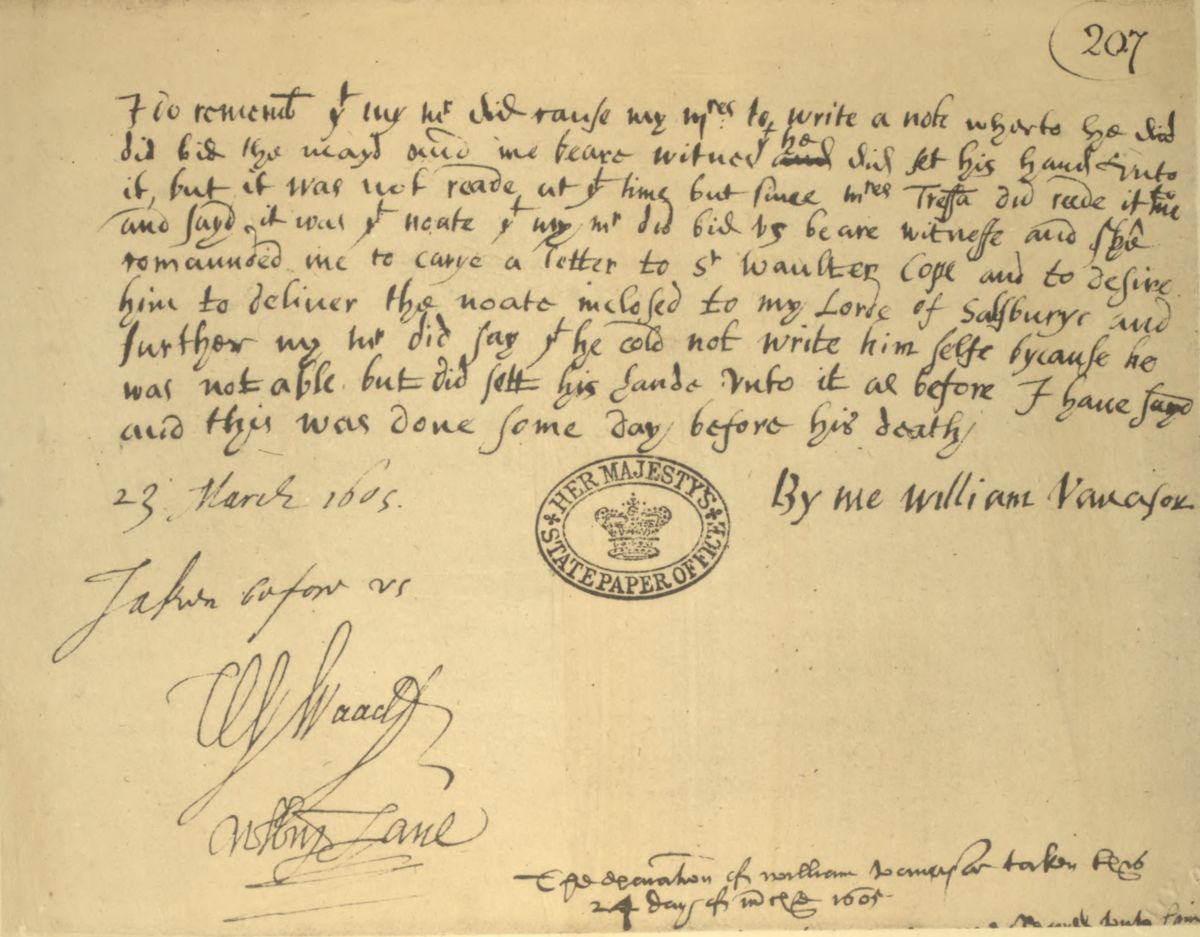 207
I do rememb yt my mr did cause my mres to write a note wherto he did
did bid the mayd and me beare witnes yt he and did set his hand vnto
it, but it was not reade at yt time but since mres Tressa did reade it to me
and sayd it was ye noate yt my mr did bid vs beare witnesse and she
comaunded me to carye a letter to Sr Waulter Cope and to desire
him to deliver the noate inclosed to my Lorde of Salsburye and
further my mr did say yt he cold not write him selfe bycause he
was not able but did sett his hande vnto it as before I have sayd
and this was done some day before his death
23 March 1605.
By me William Vauasor
HER MAJESTY'S STATE PAPER OFFICE
Taken before vs
W Waad
Lane
The examination of william vavasor taken this
24 day of march 1605
vnto